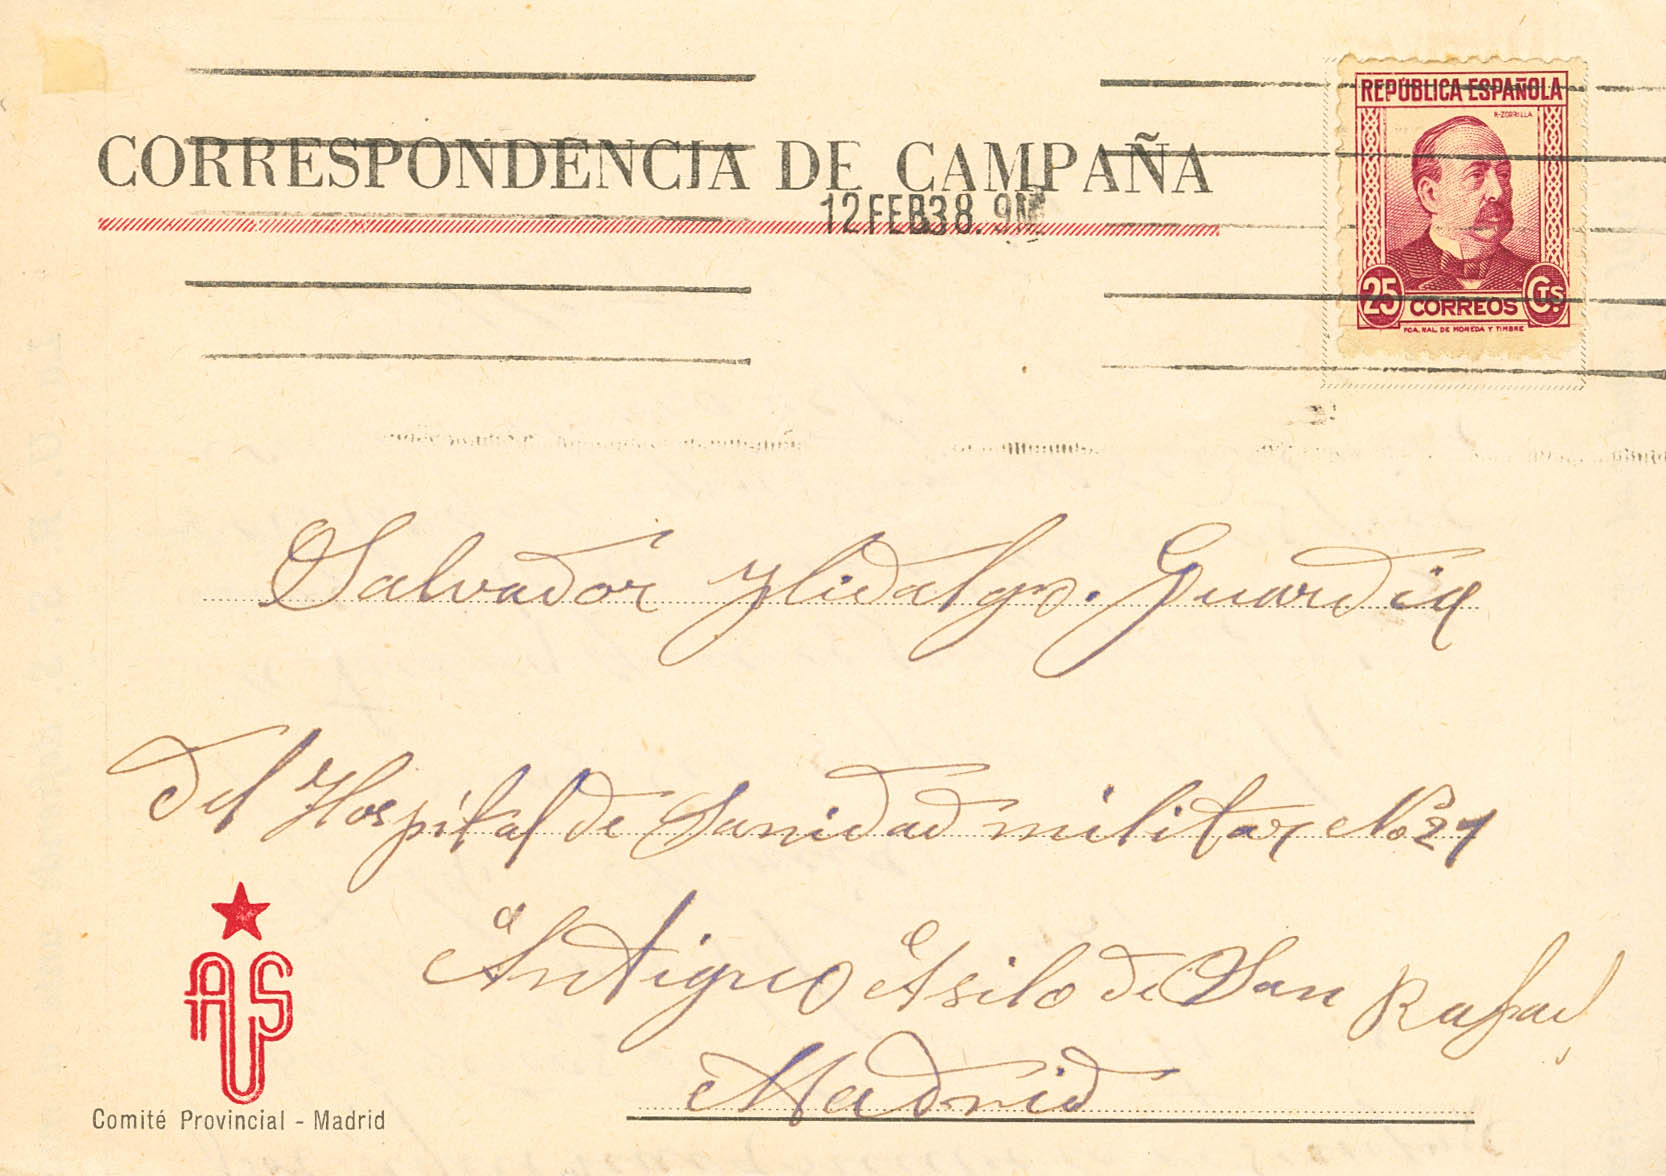 REPÚBLICA ESPAÑOLA
R. ZORRILLA
CORRESPONDENCIA DE CAMPAÑA
12 FEB 38. 9M
25 CORREOS Cts.
FCA. NAL. DE MONEDA Y TIMBRE
Salvador Hidalgo. Guardia
del Hospital de Sanidad militar No 21
Antiguo Asilo de San Rafael
Madrid
AUS
Comité Provincial - Madrid